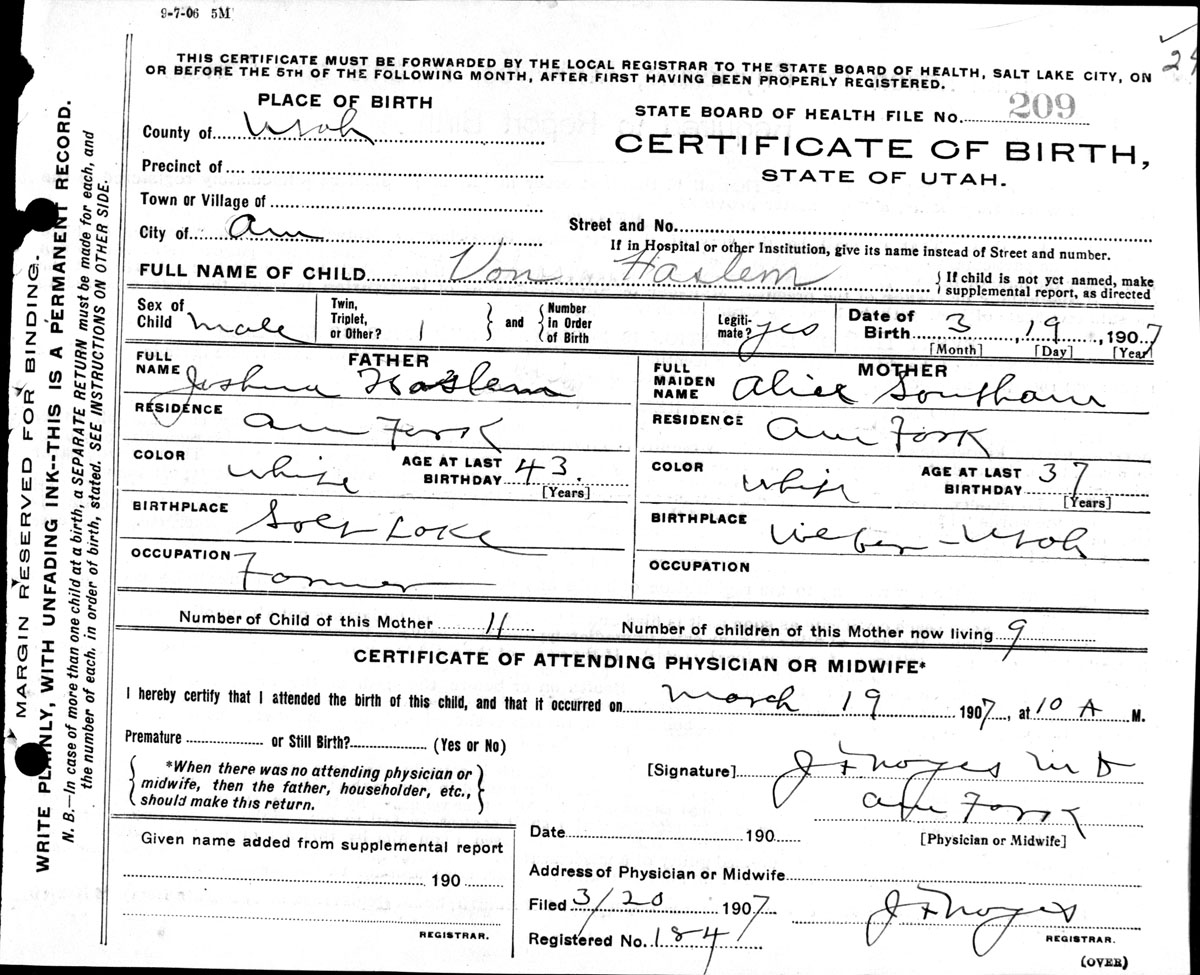 9-7-06 5M
THIS CERTIFICATE MUST BE FORWARDED BY THE LOCAL REGISTRAR TO THE STATE BOARD OF HEALTH, SALT LAKE CITY, ON
OR BEFORE THE 5TH OF THE FOLLOWING MONTH, AFTER FIRST HAVING BEEN PROPERLY REGISTERED.
PLACE OF BIRTH
STATE BOARD OF HEALTH FILE No. 209
County of Utah
CERTIFICATE OF BIRTH,
STATE OF UTAH.
Precinct of
Town or Village of
City of Am
Street and No.
If in Hospital or other Institution, give its name instead of Street and number.
FULL NAME OF CHILD Von Haslem
{If child is not yet named, make
supplemental report, as directed
Sex of Child male
Twin, Triplet, or Other? 1
} and { Number in Order of Birth
Legiti-mate? yes
Date of Birth 3, 19, 1907
[Month] [Day] [Year]
FATHER
FULL NAME Joshua Haslem
RESIDENCE Am Fork
COLOR white
AGE AT LAST BIRTHDAY 43
[Years]
BIRTHPLACE Salt Lake
OCCUPATION Farmer
MOTHER
FULL MAIDEN NAME Alice Southam
RESIDENCE Am Fork
COLOR white
AGE AT LAST BIRTHDAY 37
[Years]
BIRTHPLACE Weber - Utah
OCCUPATION
Number of Child of this Mother 11
Number of children of this Mother now living 9
CERTIFICATE OF ATTENDING PHYSICIAN OR MIDWIFE*
I hereby certify that I attended the birth of this child, and that it occurred on March 19 1907, at 10 A M.
Premature or Still Birth? (Yes or No)
{ *When there was no attending physician or
midwife, then the father, householder, etc.,
should make this return. }
[Signature] J F Noyes M D
Am Fork
[Physician or Midwife]
Date 190
Given name added from supplemental report
190
REGISTRAR.
Address of Physician or Midwife
Filed 3/20 1907
J F Noyes
REGISTRAR.
Registered No. 184
(OVER)
MARGIN RESERVED FOR BINDING.
WRITE PLAINLY, WITH UNFADING INK--THIS IS A PERMANENT RECORD.
N. B.—In case of more than one child at a birth, a SEPARATE RETURN must be made for each, and
the number of each. in order of birth, stated. SEE INSTRUCTIONS ON OTHER SIDE.